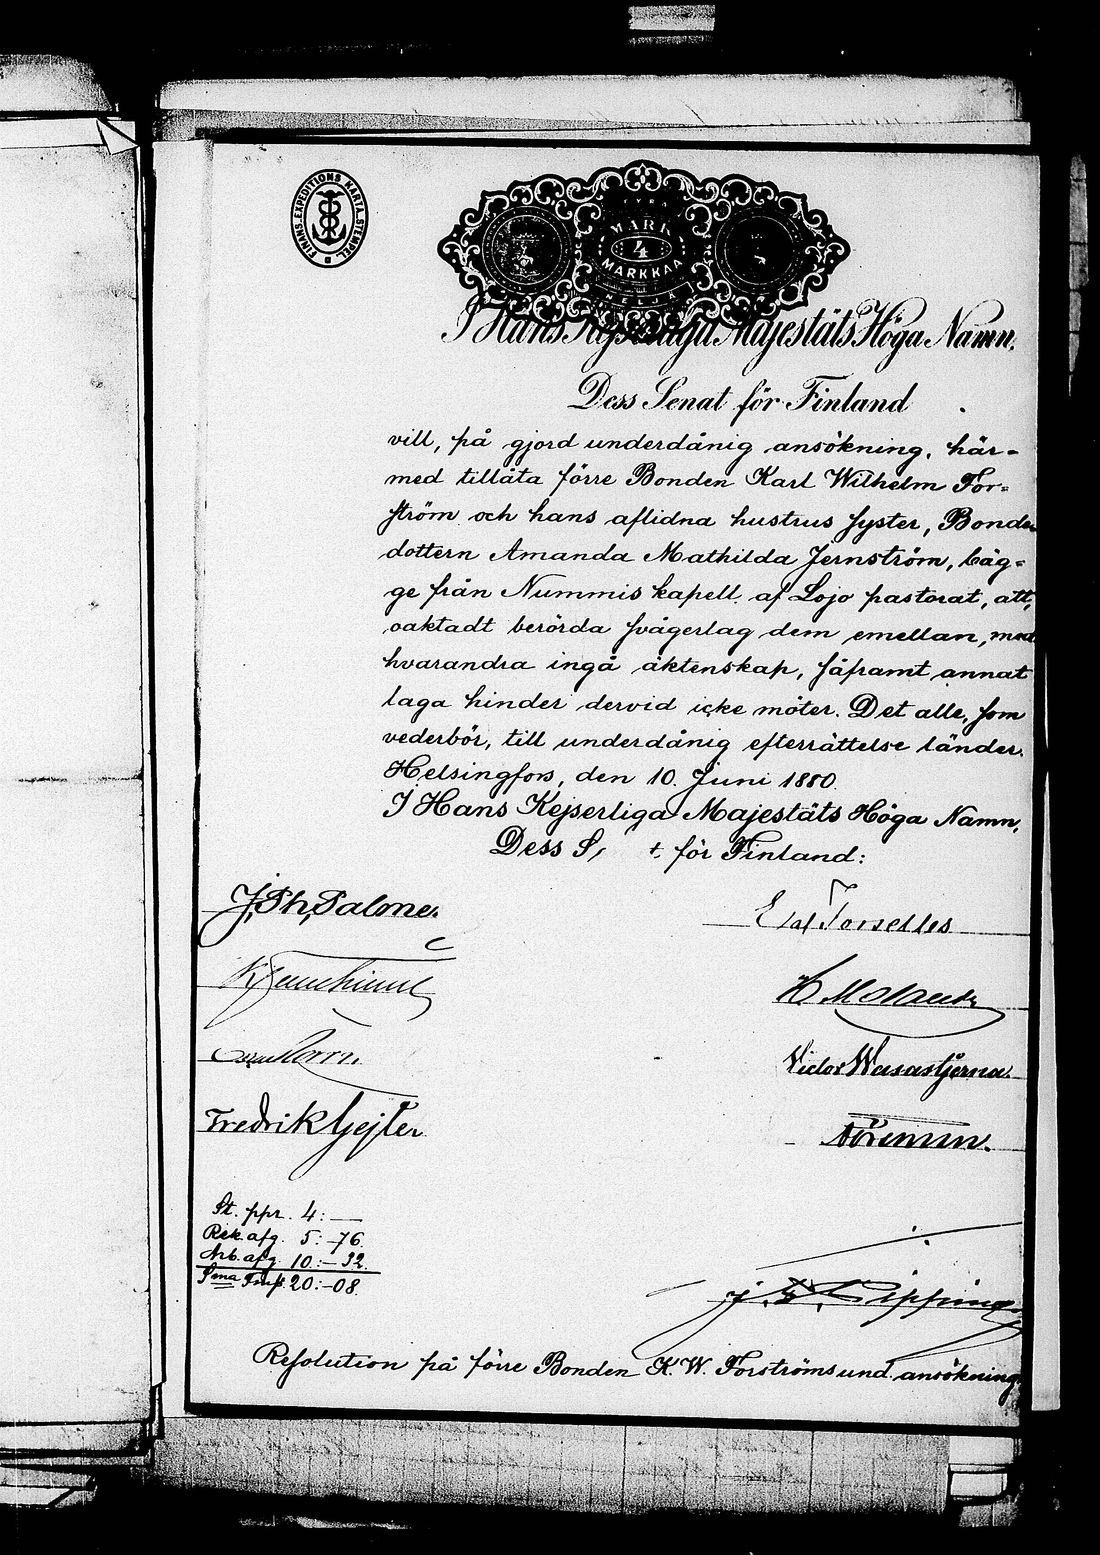 FINANS.EXPEDITIONS KARTA.STEMPEL.
FYRA
MARK
4
MARKKAA
NELJÄ
I Hans Kejserliga Majestäts Höga Namn,
Dess Senat för Finland
vill, på gjord underdånig ansökning, här-
med tillåta förre Bonden Karl Wilhelm For-
ström och hans aflidna hustrus syster, Bonde
dottern Amanda Mathilda Jernström, bäg-
ge från Nummis kapell af Lojo pastorat, att,
oaktadt berörda svågerlag dem emellan, med
hvarandra ingå äktenskap, såframt annat
laga hinder dervid icke möter. Det alle, som
vederbör, till underdånig efterrättelse länder.
Helsingfors, den 10. Juni 1880.
I Hans Kejserliga Majestäts Höga Namn,
Dess S t för Finland:
J. Ph. Palmé
Molander
Victor Wasastjerna
Norrmén.
Fredrik Gejter
St. ppr. 4: —
Rek. afg. 5: 76.
Arb. afg. 10: 32.
Sma Fmk 20: 08.
Resolution på förre Bonden K. W. Forströms und. ansökning.